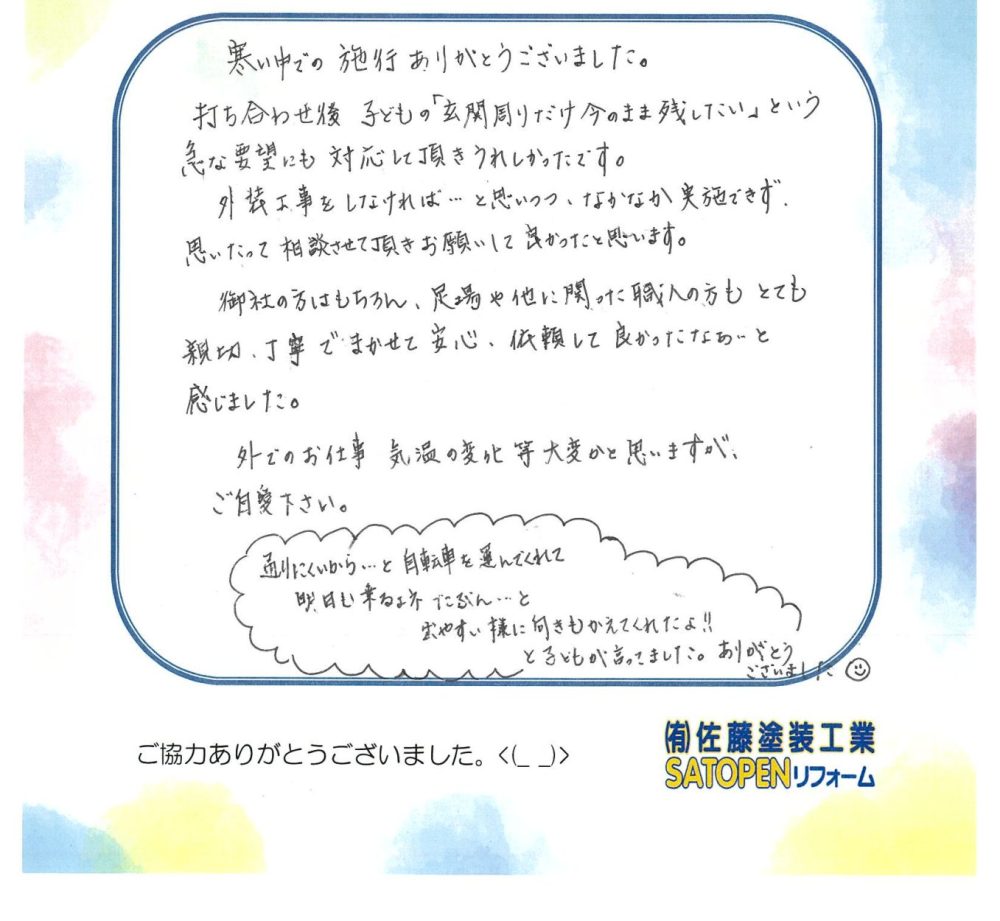 寒い中での 施行 ありがとうございました。
打ち合わせ後 子どもの「玄関周りだけ今のまま残したい」という
急な要望にも 対応して頂きうれしかったです。
外装工事をしなければ…と思いつつ、なかなか実施できず、
思いたって 相談させて頂きお願いして 良かったと思います。
御社の方はもちろん、足場や他に関った職人の方も とても
親切、丁寧で まかせて 安心、依頼して 良かったなぁ…と
感じました。
外でのお仕事 気温の変化 等 大変かと思いますが、
ご自愛下さい。
通りにくいから…と 自転車を 運んでくれて
明日も乗るよネ たぶん…と
出やすい 様に 向きもかえてくれたよ!!
と子どもが言ってました。ありがとう
ございました
ご協力ありがとうございました。<(_ _)>
㈲佐藤塗装工業
SATOPENリフォーム